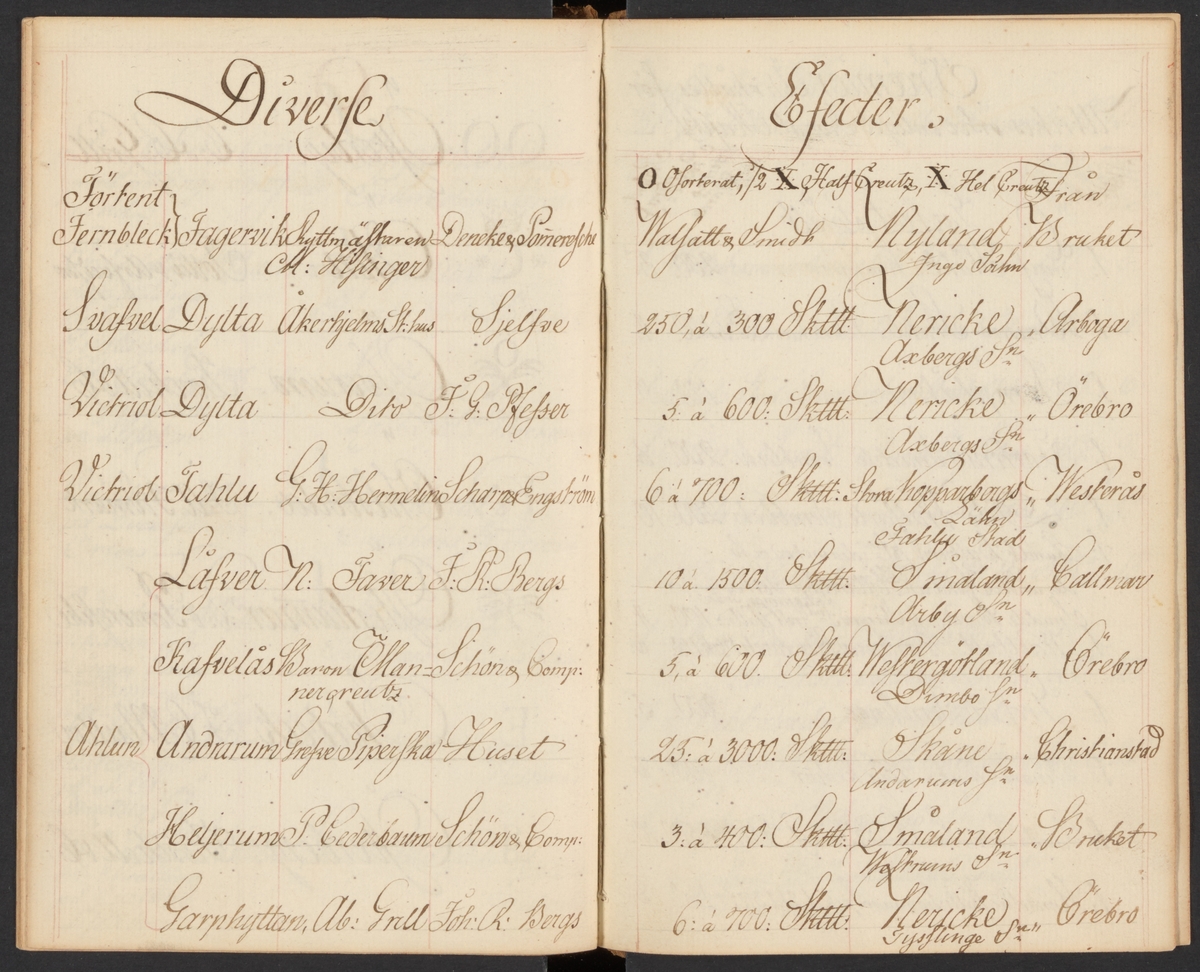 Diverse
Förtent
Fernbleck Fagervik Ryttmästaren Dencke & Pomeresche
M: Hisinger
Svafvel Dylta Åkerhjelms St:hus Sjelfve
Victriol Dylta Dito J: G: Pfeffer
Victriol Fahlu G: H: Hermelin Scharp & Engström
Låfver N: Faver J: R: Bergs
Kafvelås Baron E Man=Schön & Comp:
nergreutz
Ahlun Andrarum Grefve Piperska Huset
Heljerum P: Cederbaum Schön & Comp:
Garphyttan, Ab: Grill Joh: R: Bergs
Efecter.
O Osorterat, 1/2 X, Half Creutz, X Hel Creutz
Från
Walsatt & Smidt Nyland Bruket
Ingo Sähn
250, á 300 Skttt: Nericke „ Arboga
Axbergs Sn
5: á 600: Skttt: Nericke „ Örebro
Axbergs Sn
6 á 700: Skttt: Stora Kopparbergs „ Westerås
Lähn
Fahlu Stad
10 á 1500: Skttt: Småland „ Callmar
Arby Sn
5, á 600. Skttt: Westergötland „ Örebro
Dimbo Sn
25: á 3000: Skttt: Skåne „ Christianstad
Andarums Sn
3: á 400: Skttt: Småland „ Bruket
Westrums Sn
6: á 700: Skttt: Nericke „ Örebro
Tysslinge Sn